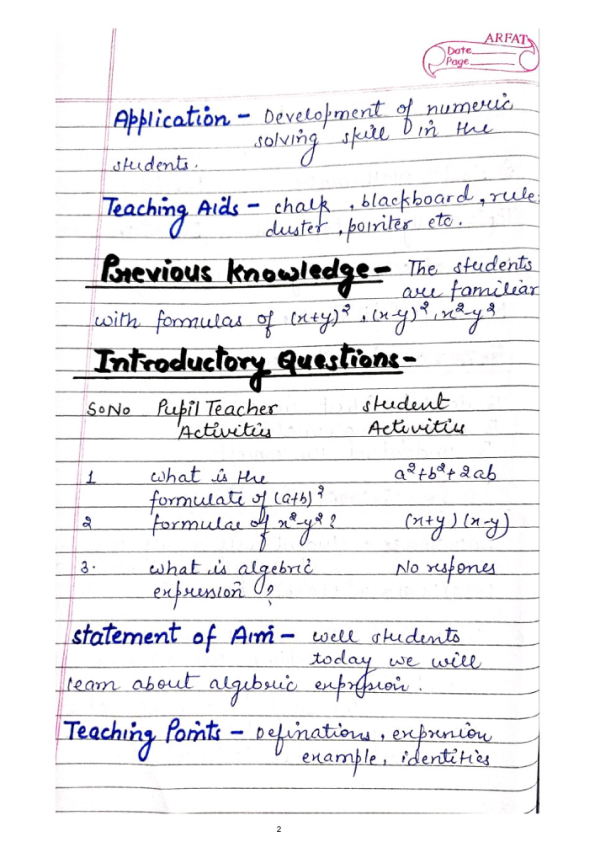 ARFAT
Date
Page
Application - Development of numeric
solving skill in the
students.
Teaching Aids - chalk, blackboard, rule
duster, pointer etc.
Previous knowledge - The students
are familiar
with formulas of (x+y)², (x-y)², x²-y²
Introductory Questions -
S.No Pupil Teacher student
Activities Activities
1 what is the a²+b²+2ab
formulate of (a+b)²
2 formulae of x²-y²? (x+y)(x-y)
3. what is algebric No respones
expression?
statement of Aim - well students
today we will
learn about algebric expression.
Teaching Points - Definations, expression
example, identities
2